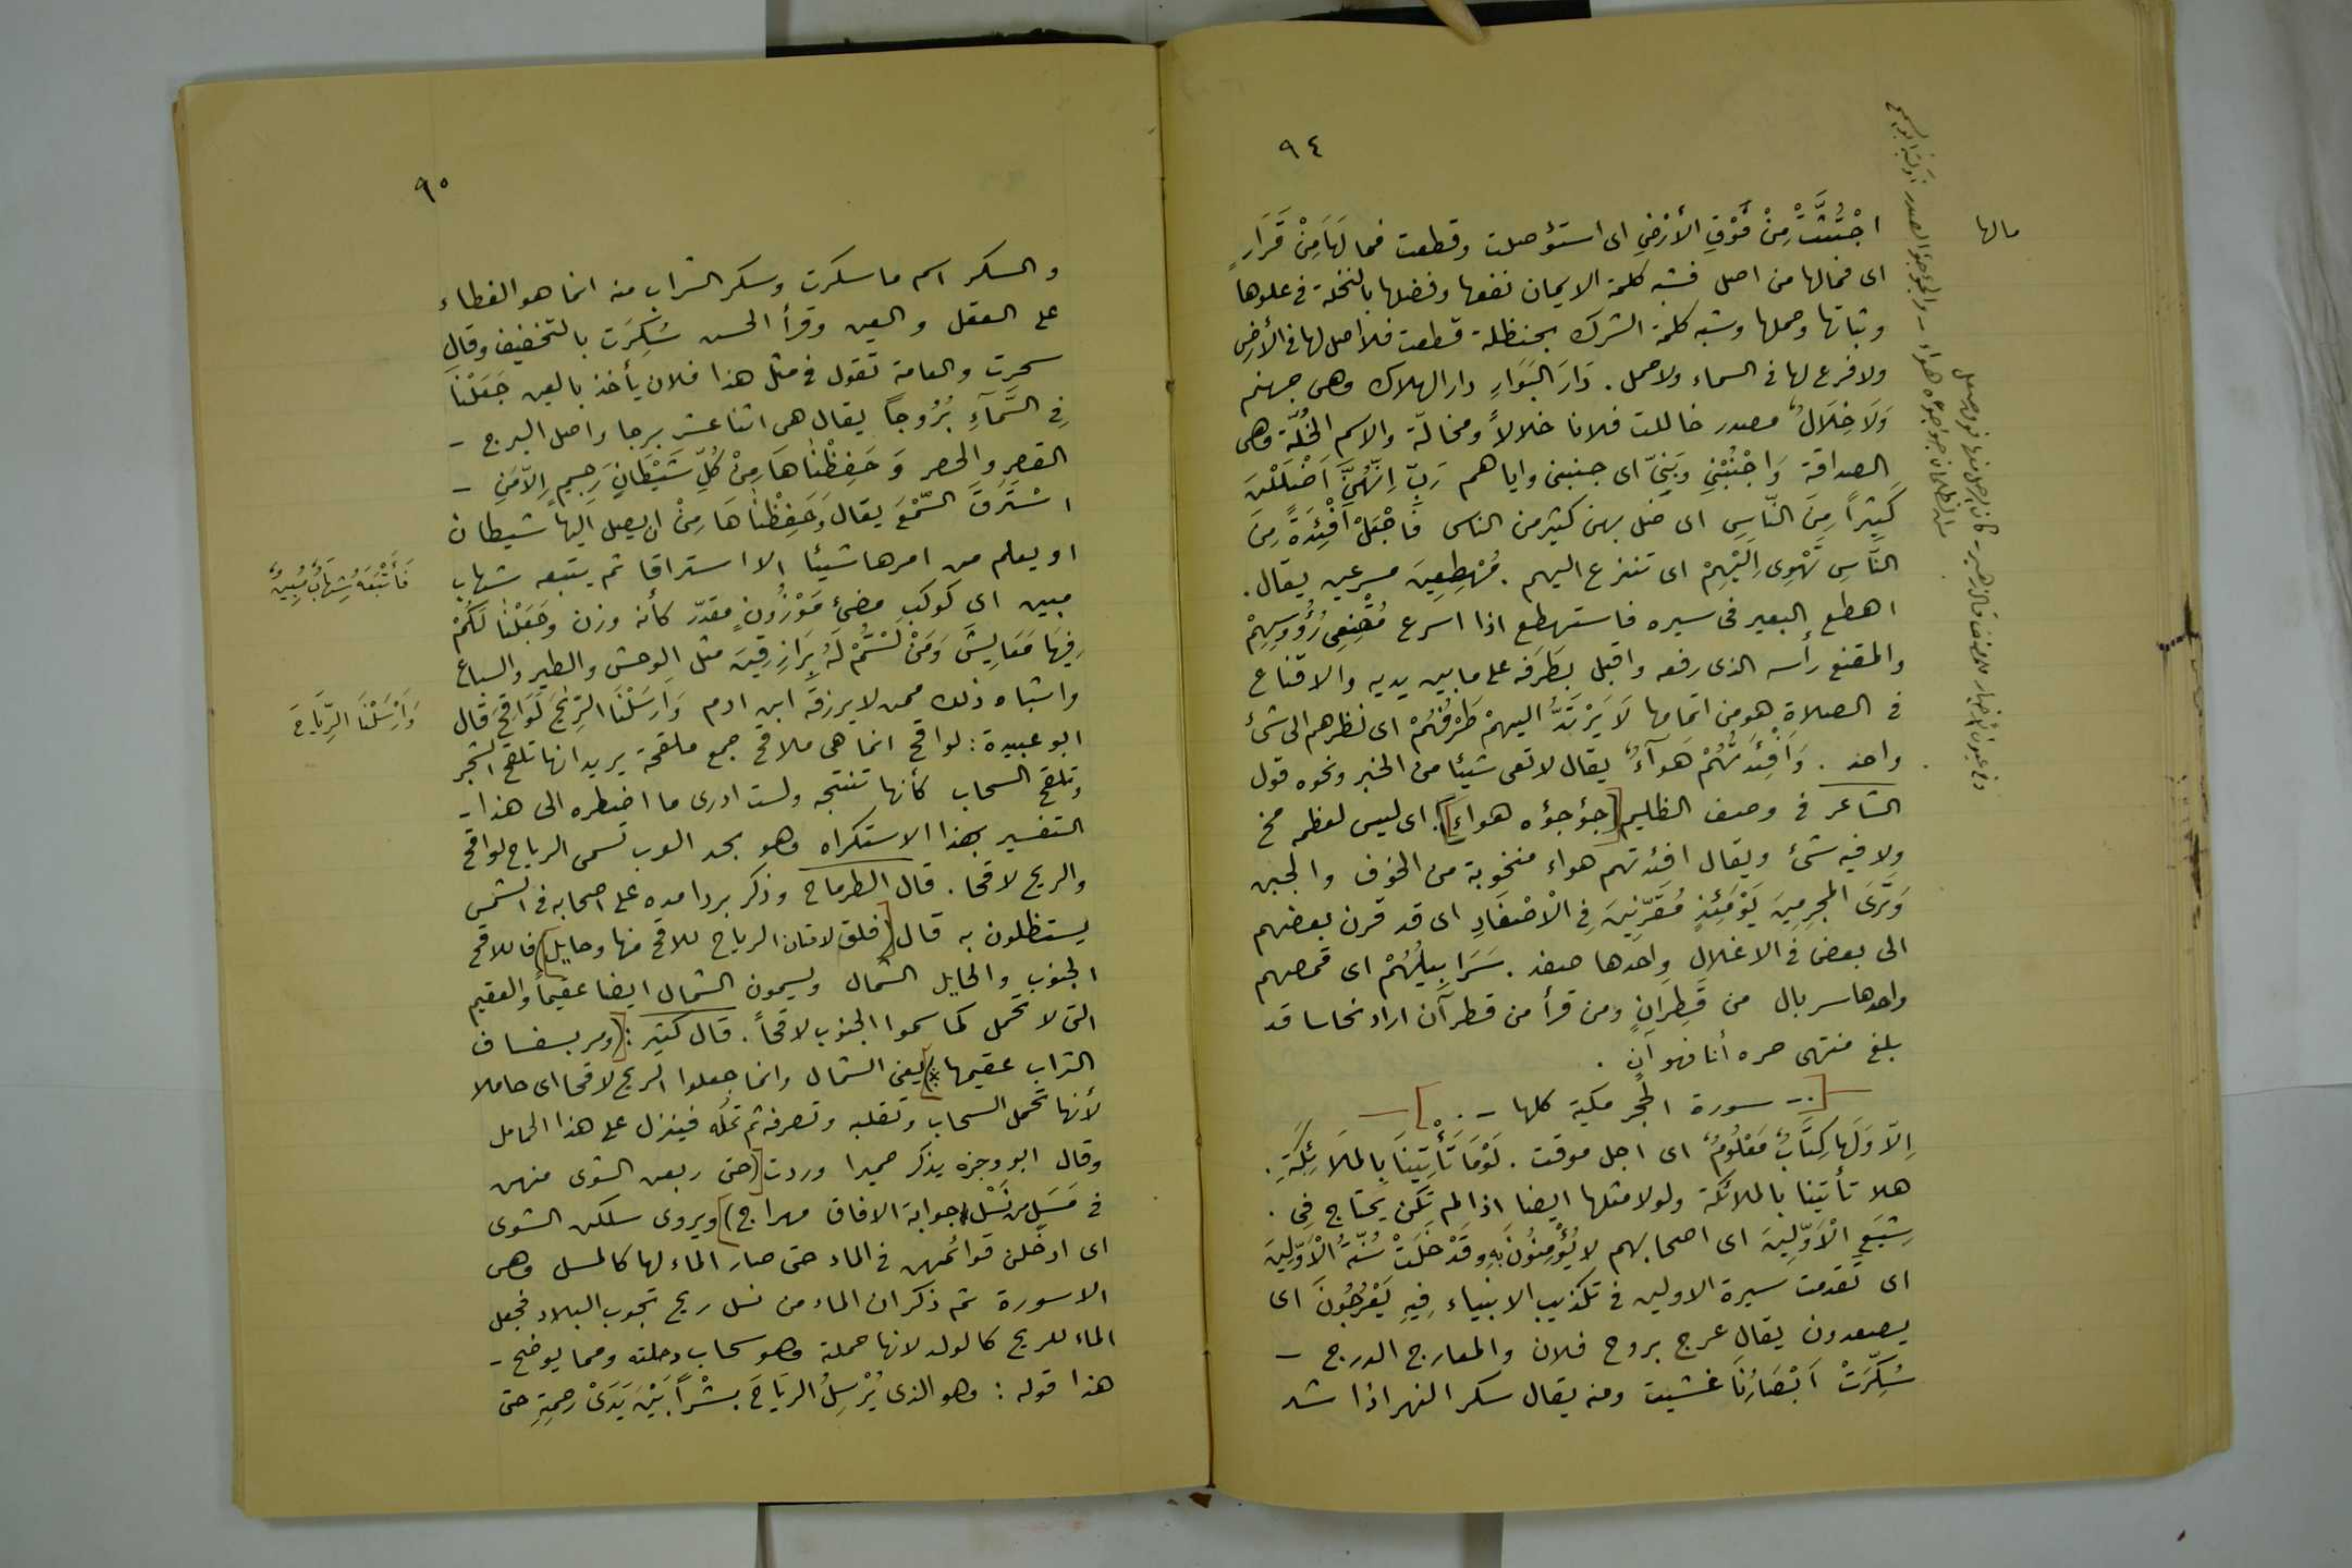 ٩٤
مالها
اجْتُثَّتْ مِنْ فَوْقِ الأرْضِ اى استؤصلت وقطعت فما لَهَا مِنْ قَرَارٍ
اى فمالها من اصل فشبه كلمة الايمان نفعها وفضلها بالنخلة فى علوها
وثباتها وحملها وشبه كلمة الشرك بحنظلة قطعت فلا اصل لها فى الأرض
ولا فرع لها فى السماء ولا حمل . دَارَ البَوَارِ دار الهلاك وهى جهنم
وَلَا خِلَالٌ مصدر خاللت فلانا خلالاً ومخالّة والاسم الخُلّة وهى
الصداقة وَاجْنُبْنِى وَبَنِىَّ اى جنبنى واياهم رَبِّ اِنَّهُنَّ اَضْلَلْنَ
كَثِيْراً مِنَ النَّاسِ اى ضل بهن كثير من الناس فَاجْعَلْ اَفْئِدَةً مِنَ
النَّاسِ تَهْوِى اِلَيْهِمْ اى تنزع اليهم . مُهْطِعِينَ مسرعين يقال .
اهطع البعير فى سيره فاستهطع اذا اسرع مُقْنِعِى رُؤُوسِهِمْ
والمقنع رأسه الذى رفعه واقبل بطَرَفه على ما بين يديه والاقناع
فى الصلاة هو من اتمامها لَا يَرْتَدُّ اليهمْ طَرْفُهُمْ اى نظرهم الى شئ
واحد . وَاَفْئِدَتُهُمْ هَوآءٌ يقال لا تعى شيئا من الخير ونحوه قول
الشاعر فى وصف الظليم [(جؤجؤه هواء)] اى ليس لعظمه مخ
ولا فيه شئ ويقال افئدتهم هواء منخوبة من الخوف والجبن
وَتَرَى المجرِمِيَن يَوْمَئِذٍ مُقَرَّنِينَ فِى الْاَصْفَادِ اى قد قرن بعضهم
الى بعض فى الاغلال واحدها صفد . سَرَابِيلُهُمْ اى قمصهم
واحدها سربال من قَطِرانٍ ومن قرأ من قطرآن اراد نحاسا قد
بلغ منتهى حره أنا فهو آنٍ .
— [ .- سورة الحجر مكية كلها - . ] —
اِلَّا وَلَهَا كِتَابٌ مَعْلُومٌ اى اجل موقت . لَوْمَا تَأْتِينَا بِالمَلَائِكَةِ .
هلا تأتينا بالملائكة ولولا مثلها ايضا اذا لم تكن يحتاج فى .
شِيَعِ الْاَوَّلِينَ اى اصحابهم لا يُؤْمِنُونَ بِهِ وقَدْ خَلَتْ سُنَّةُ الْاَوَّلِينَ
اى تقدمت سيرة الاولين فى تكذيب الانبياء فِيهِ يَعْرُجُونَ اى
يصعدون يقال عرج بروح فلان والمعارج الدرج —
سُكِّرَتْ اَبْصَارُنَا غشيت ومنه يقال سكر النهر اذا شد
٩٥
والسكر اسم ما سكرت وسكر الشراب منه انما هو الغطاء
على العقل والعين وقرأ الحسن سُكِرَت بالتخفيف وقال
سحرت والعامة تقول فى مثل هذا فلان يأخذ بالعين جَعَلْنَا
فِى السَّمَآءِ بُرُوجاً يقال هى اثنا عشر برجا واصل البرج -
القصر والحصر وَحَفِظْنَاهَا مِنْ كُلِّ شَيْطَانٍ رَجِيمٍ اِلَّا مَنِ -
اسْتَرَقَ السَّمْعَ يقال وَحَفِظْنَاهَا مِنْ ان يصل اليها شيطان
او يعلم من امرها شيئا الا استراقا ثم يتبعه شهاب
فَأَتْبَعَهُ شِهَابٌ مُبِينٌ
مبين اى كوكب مضئ مَوْزُونٍ مقدّر كأنه وزن وجَعَلْنَا لَكُمْ
فِيهَا مَعَايِشَ وَمَنْ لَسْتُمْ لَهُ بِرَازِقِينَ مثل الوحش والطير والسباع
واشباه ذلك ممن لا يرزقه ابن ادم وَاَرسَلْنَا الرِّيَحَ لَوَاقِحَ قال
وَأَرْسَلْنَا الرِّيَاحَ
ابو عبيدة : لواقح انما هى ملاقح جمع ملقحة يريد انها تلقح الشجر
وتلقح السحاب كأنها تنتجه ولست ادرى ما اضطره الى هذا -
التفسير بهذا الاستكراه وهو يجد العرب تسمى الرياح لواقح
والريح لاقحا . قال الطرماح وذكر بردا مده على اصحابه فى الشمس
يستظلون به قال [(فلق لافنان الرياح للاقح منها وحايل)] فاللاقح
الجنوب والحايل الشمال ويسمون الشمال ايضا عقيماً والعقيم
التى لا تحمل كما سموا الجنوب لاقحاً . قال كثير : [(ومر بسفساف
التراب عقيمها)] يعنى الشمال وانما جعلوا الريح لاقحا اى حاملا
لأنها تحمل السحاب وتقلبه وتصرفه ثم تحله فينزل على هذا الحامل
وقال ابو وجزه يذكر حميرا وردت [(حتى ربعن الشوى منهن
فى مَسَلٍ من نَسْل جوابة الافاق مهداج)] ويروى سلكن الشوى
اى ادخلن قوائمهن فى الماء حتى صار الماء لها كالمسل وهى
الاسورة ثم ذكر ان الماء من نسل ريح تجوب البلاد فجعل
الماء للريح كالولد لانها حملته وهو سحاب وحلته ومما يوضح -
هذا قوله : وهو الذى يُرْسِلُ الرِيَاحَ بشْراً بَيْنَ يَدَىْ رحمتِهِ حتى